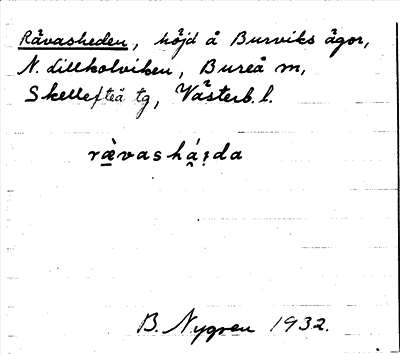 Rävasheden, höjd å Burviks ägor,
N. Lillkolviken, Bureå sn,
Skellefteå tg, Västerb. l.
ræ̀vashá̭ı̣da
B. Nygren 1932.